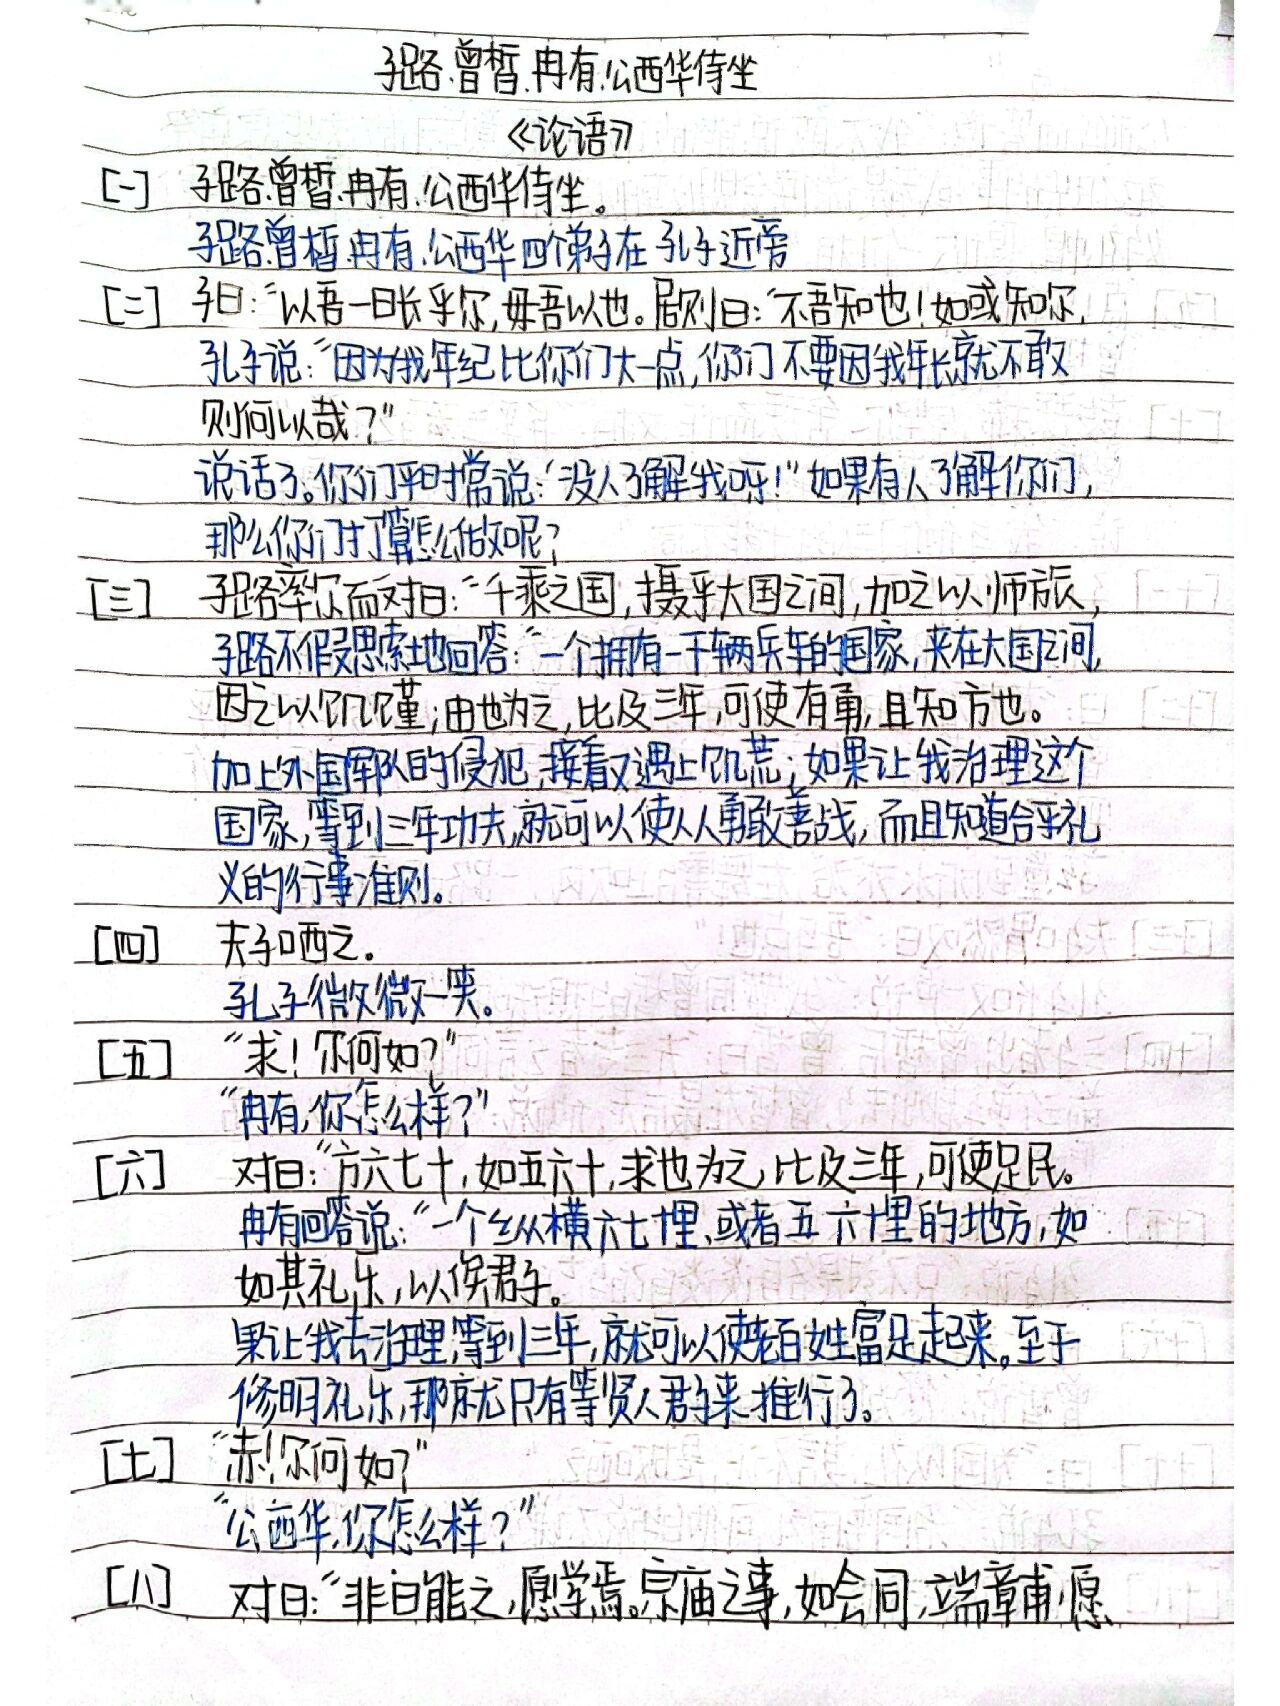 子路、曾皙、冉有、公西华侍坐
《论语》
[一] 子路、曾皙、冉有、公西华侍坐。
子路、曾皙、冉有、公西华四个弟子在孔子近旁
[二] 子曰：“以吾一日长乎尔，毋吾以也。居则曰：“不吾知也！如或知尔，
孔子说：“因为我年纪比你们大一点，你们不要因我年长就不敢
则何以哉？”
说话了。你们平时常说：‘没人了解我呀！”如果有人了解你们，
那么你们打算怎么做呢？
[三] 子路率尔而对曰：“千乘之国，摄乎大国之间，加之以师旅，
子路不假思索地回答：“一个拥有一千辆兵车的国家，夹在大国之间，
因之以饥馑；由也为之，比及三年，可使有勇，且知方也。
加上外国军队的侵犯，接着又遇上饥荒；如果让我治理这个
国家，等到三年功夫，就可以使人人勇敢善战，而且知道合乎礼
义的行事准则。
[四] 夫子哂之。
孔子微微一笑。
[五] “求！尔何如？”
“冉有，你怎么样？”
[六] 对曰：“方六七十，如五六十，求也为之，比及三年，可使足民。
冉有回答说：“一个纵横六七十里、或者五六十里的地方，如
如其礼乐，以俟君子。
果让我去治理，等到三年，就可以使老百姓富足起来。至于
修明礼乐，那就只有等贤人君子来推行了。
[七] “赤！尔何如？”
“公西华，你怎么样？”
[八] 对曰：“非曰能之，愿学焉。宗庙之事，如会同，端章甫，愿